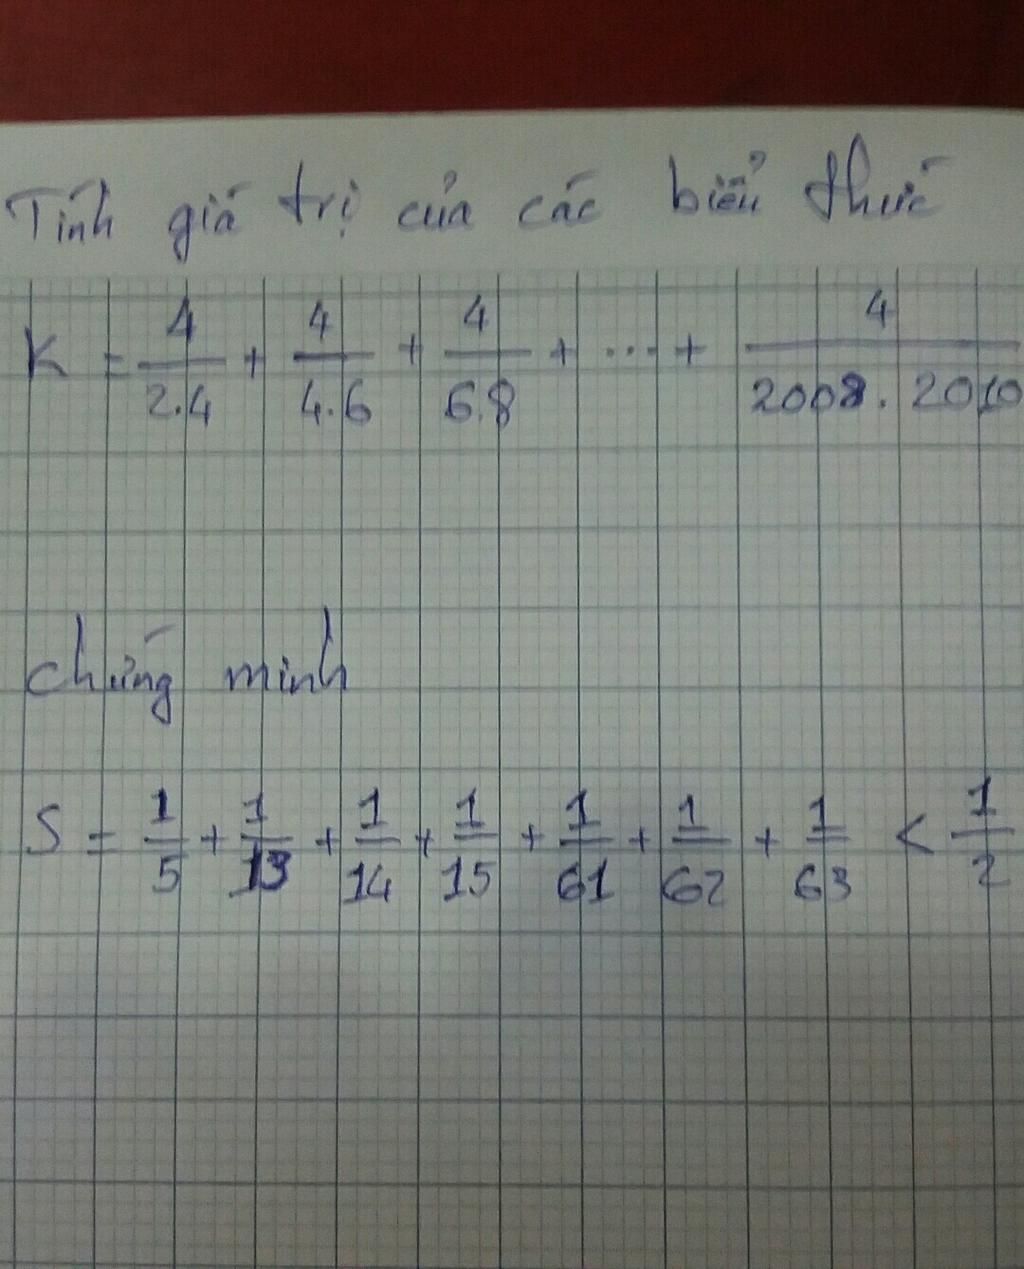 Tính giá trị của các biểu thức
K = 4/2.4 + 4/4.6 + 4/6.8 + ... + 4/2008.2010
chứng minh
S = 1/5 + 1/13 + 1/14 + 1/15 + 1/61 + 1/62 + 1/63 < 1/2